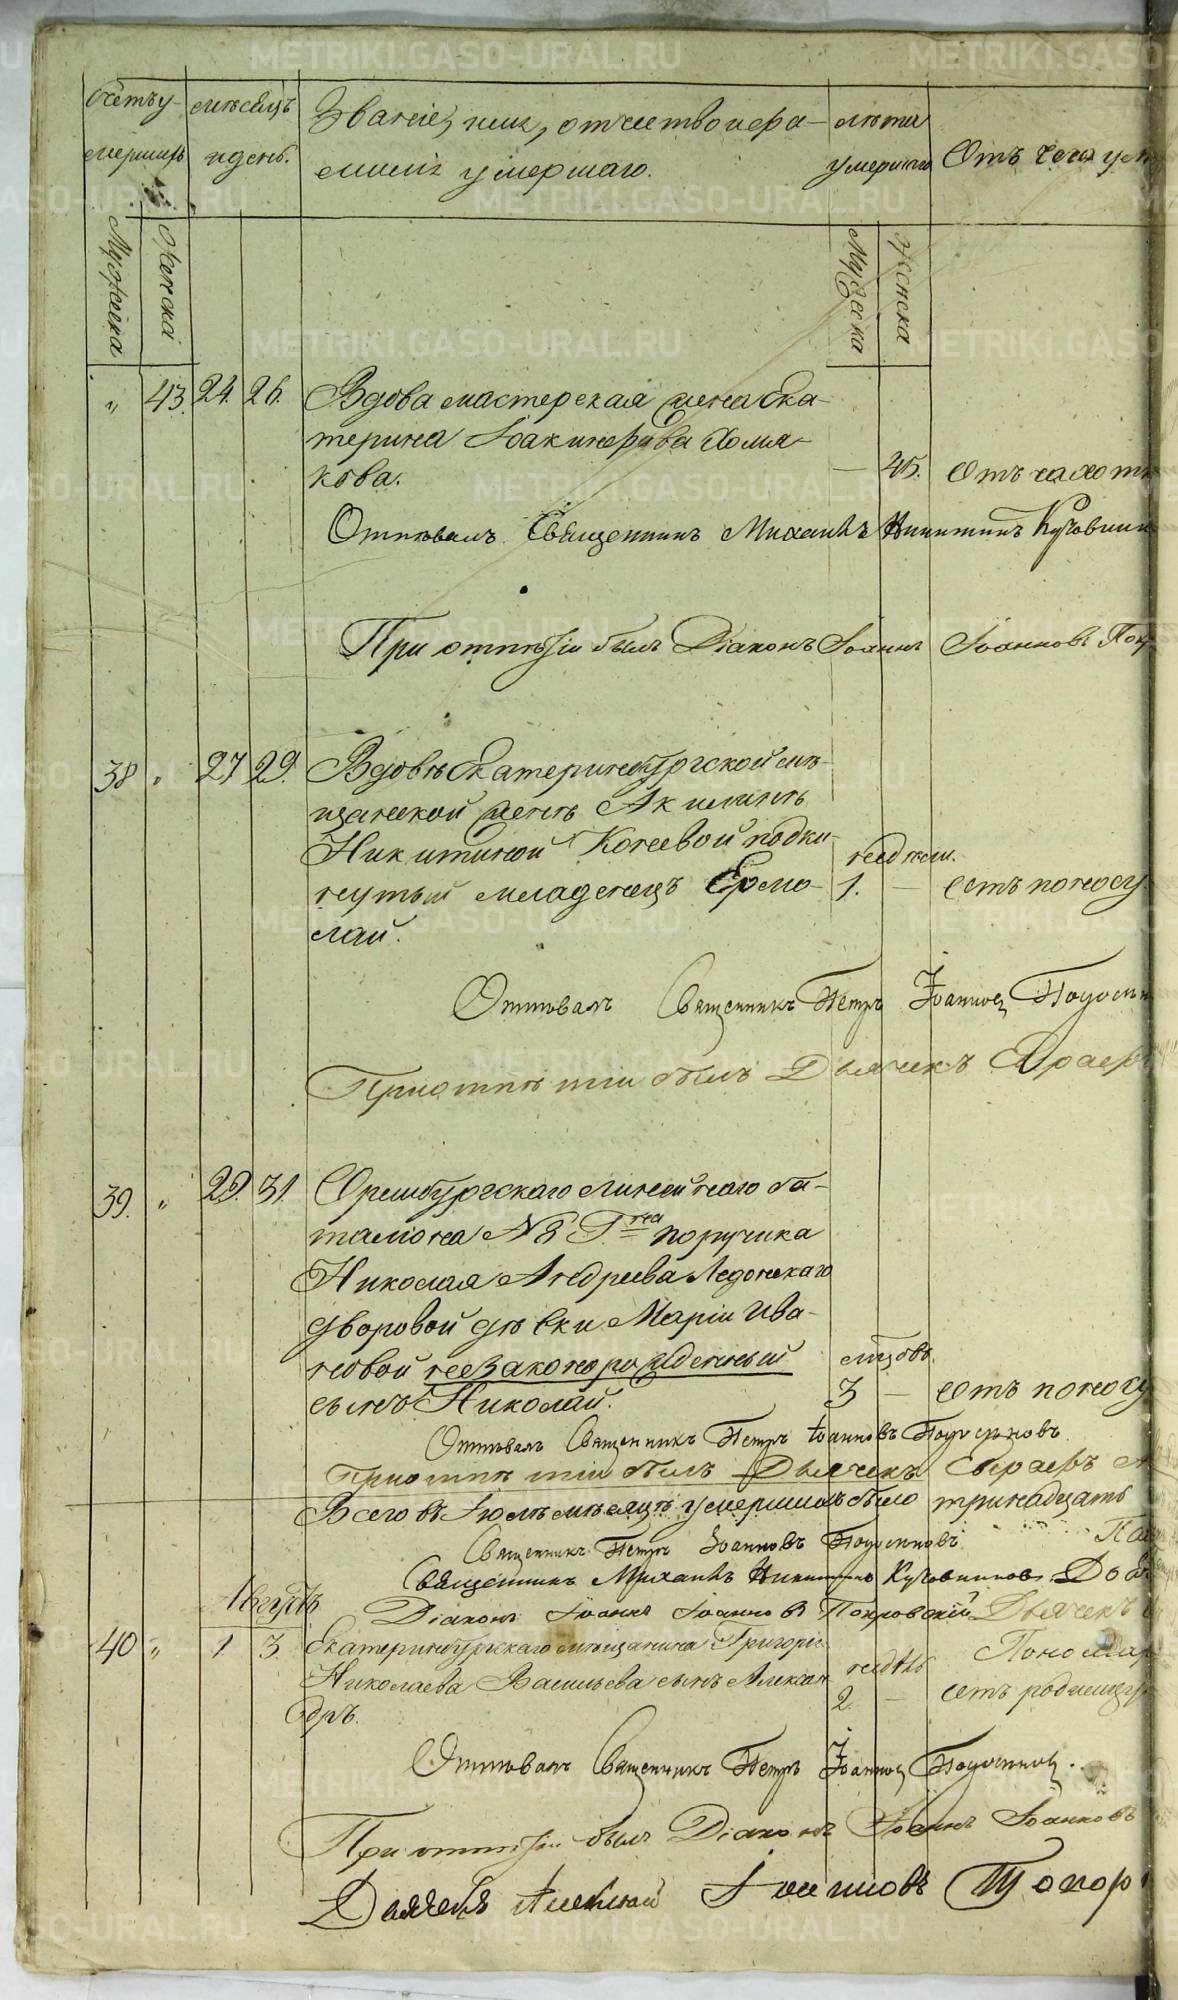 METRIKI.GASO-URAL.RU
Счетъ у-
мершихъ
мѣсяцъ
и день.
Званіе, имя, отчество и фа-
милія умершаго.
лѣта
умершаго
Отъ чего ум
Мужеска
Женска
Мужеска
Женска
" 43. 24. 26. Вдова мастерская жена Ека-
терина Іоакинфова Холмя-
кова. — 45. Отъ чахотк
Отпѣвалъ Священникъ Михаилъ Никитинъ
При отпѣтіи былъ Діаконъ Іоаннъ Іоанновъ Пок
38 " 27 29. Вдовѣ Екатеринбургской мѣ-
щанской женѣ Акилинѣ
Никитиной Котевой подки-
недѣли.
нутый младенецъ Ермо- 1. — отъ поносу
лай.
Отпѣвалъ Священникъ Петръ Іоанновъ
При отпѣтіи былъ Дьячекъ
39. " 29. 31. Оренбургскаго Линейнаго ба-
таліона № 8 Гна поручика
Николая Андреева Ледонскаго
дворовой дѣвки Маріи Ива-
новой незаконорожденный
мѣсяцовъ
сынъ Николай. 3 — отъ поносу
Отпѣвалъ Священникъ Петръ Іоанновъ
При отпѣтіи былъ Дьячекъ
Всего въ Іюлѣ мѣсяцѣ умершихъ было тринадцать
Священникъ Петръ Іоанновъ
Священникъ Михаилъ Никитинъ
Діаконъ Іоаннъ Іоанновъ Покровскій Дьячекъ
Августъ
40 " 1 3 Екатеринбургскаго мѣщанина Григорія Пономар
Николаева Васильева сынъ Алексан- недѣль
дръ. 2. — отъ родимцу
Отпѣвалъ Священникъ Петръ Іоанновъ
При отпѣтіи былъ Діаконъ Іоаннъ Іоанновъ
Дьячекъ Алексій Іоанновъ Топор